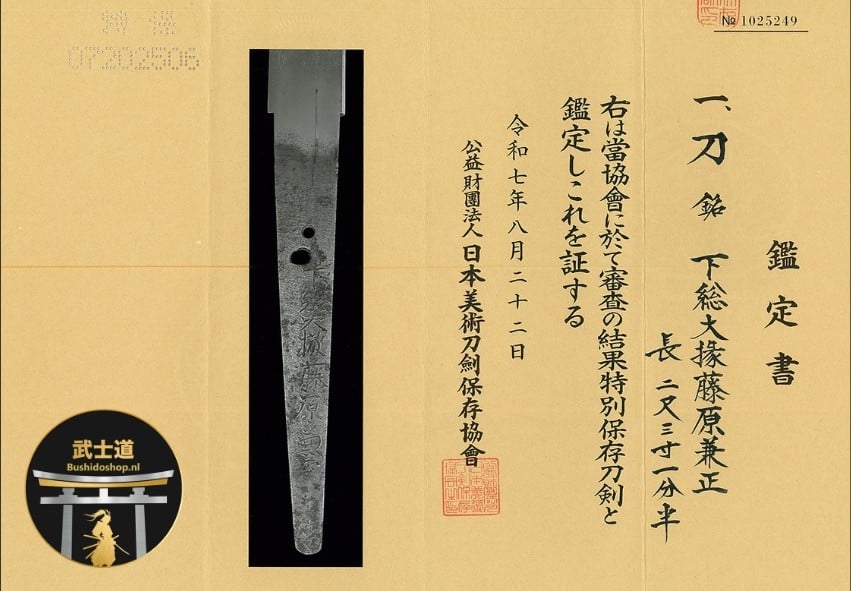 № 1025249
鑑定書
一、刀 銘 下総大掾藤原兼正
長 二尺三寸一分半
右は當協會に於て審査の結果特別保存刀剣と
鑑定しこれを証する
令和七年八月二十二日
公益財團法人 日本美術刀劍保存協會
特保
07202506
武士道
Bushidoshop.nl